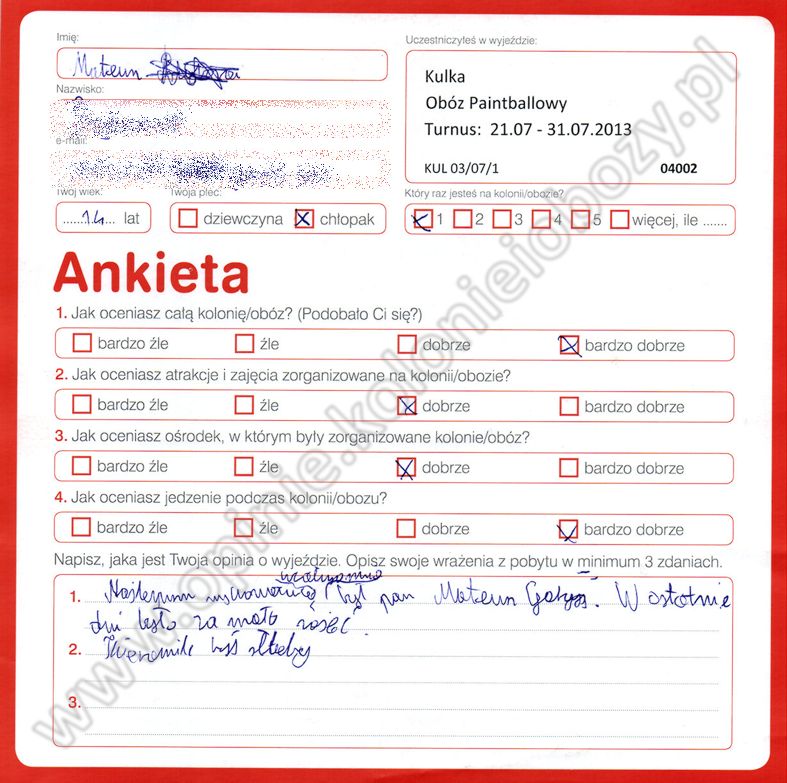 Imię:
Mateusz
Uczestniczyłeś w wyjeździe:
Kulka
Obóz Paintballowy
Turnus: 21.07 - 31.07.2013
KUL 03/07/1 04002
Nazwisko:
e-mail:
Twój wiek:
14 lat
Twoja płeć:
dziewczyna chłopak
Który raz jesteś na kolonii/obozie?
1 2 3 4 5 więcej, ile .......
Ankieta
1. Jak oceniasz całą kolonię/obóz? (Podobało Ci się?)
bardzo źle źle dobrze bardzo dobrze
2. Jak oceniasz atrakcje i zajęcia zorganizowane na kolonii/obozie?
bardzo źle źle dobrze bardzo dobrze
3. Jak oceniasz ośrodek, w którym były zorganizowane kolonie/obóz?
bardzo źle źle dobrze bardzo dobrze
4. Jak oceniasz jedzenie podczas kolonii/obozu?
bardzo źle źle dobrze bardzo dobrze
Napisz, jaka jest Twoja opinia o wyjeździe. Opisz swoje wrażenia z pobytu w minimum 3 zdaniach.
1. był pan Mateusz W ostatnie
dni było za mało zajęć.
2. Kierownik był słaby
3.
www.opinie.kolonieiobozy.pl